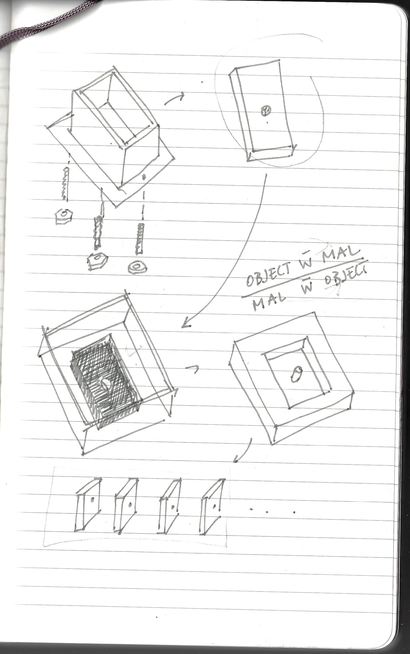 OBJECT W̄ MAL
MAL W̄ OBJECT